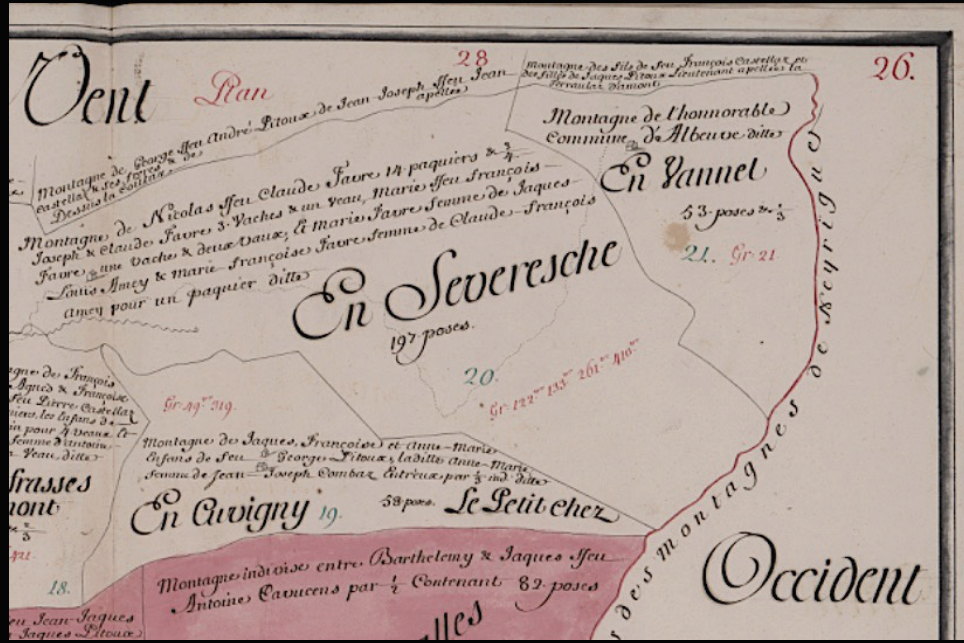 Vent
Plan
28
26.
Montagne de George ffeu André Pitoux de Jean-Joseph ffeu Jean
Castellaz & ses freres & de
apellée
Dessus la
Montagne des fils de feu François Castellaz et
des filles de Jaques Pitoux Lieutenant apellées la
d'amont
Montagne de l'honnorable
Commune d'Albeuve ditte
En Vannel
53 poses & 1/3
21. Gr. 21
Montagne de Nicolas ffeu Claude Favre 14 paquiers & 3/4
Joseph & Claude Favre 3 Vaches & un veau, Marie ffeu François
Favre une vache & deux vaux, Et Marie Favre femme de Jaques-
Louis Amey & Marie-Françoise Favre femme de Claude-François
Amey pour un paquier ditte
En Severesche
197 poses.
20.
Gr. 122. 133. 261. 410.
de Neyrigues
des montagnes
Occident
agne de François
Agnes & Françoise
feu Pierre Castellaz
les Enfans de
pour 4 Veaux Et
femme d'antoine
Veau, ditte
frasses
mont
18.
Gr. 49. 319.
Montagne de Jaques, Françoise et Anne-Marie
Enfans de feu George Pitoux, laditte Anne-Marie
femme de Jean Joseph Combaz Entreux, par 1/3 ind. ditte
En Cuvigny 19.
58 poses. Le Petit chez
Montagne indivise entre Barthelemy & Jaques ffeu
Antoine Cavucens par 1/2 Contenant 82 poses
lles
eu Jean-Jaques
Jaques Pitoux